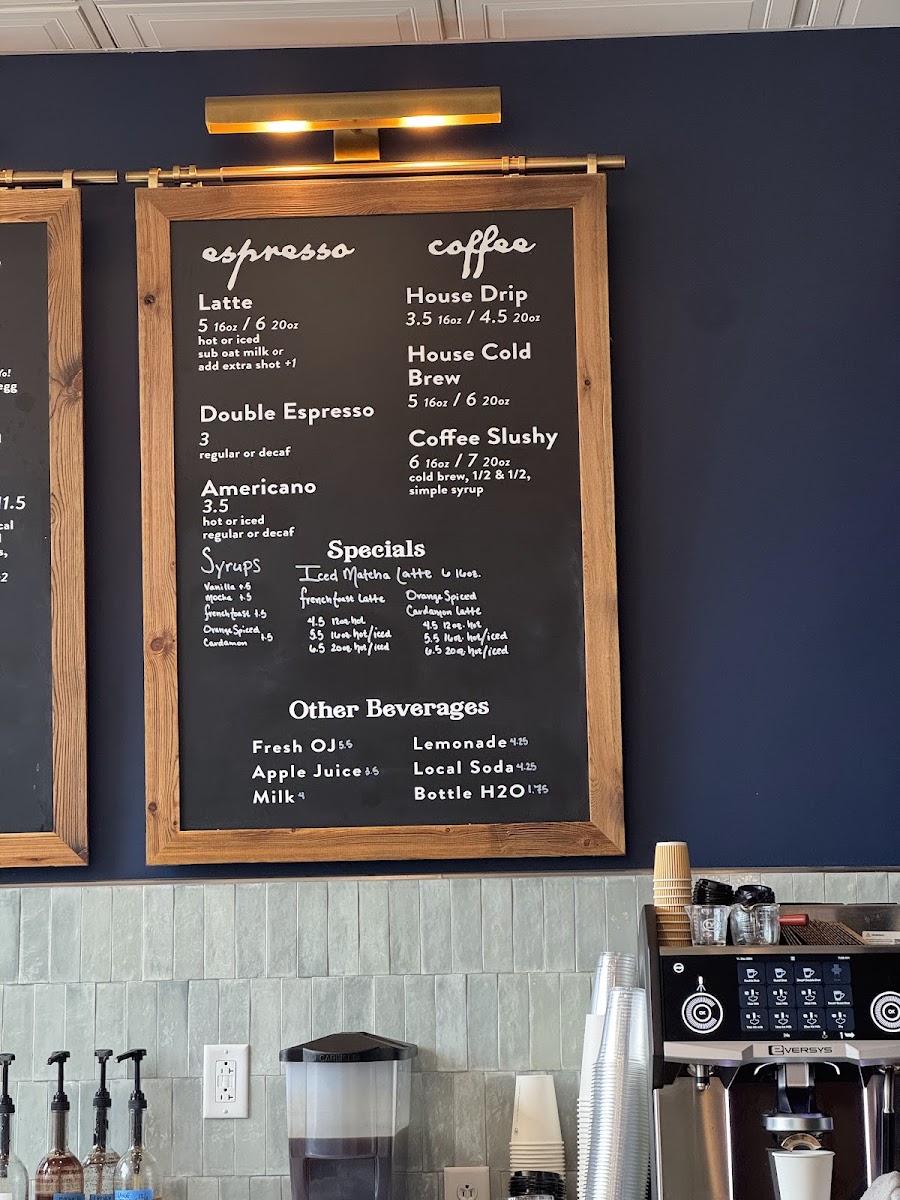 Yo!
egg
11.5
cal
s,
espresso
Latte
5 16oz / 6 20oz
hot or iced
sub oat milk or
add extra shot +1
Double Espresso
3
regular or decaf
Americano
3.5
hot or iced
regular or decaf
coffee
House Drip
3.5 16oz / 4.5 20oz
House Cold
Brew
5 16oz / 6 20oz
Coffee Slushy
6 16oz / 7 20oz
cold brew, 1/2 & 1/2,
simple syrup
Syrups
Vanilla +.5
Mocha +.5
frenchtoast +.5
Orange Spiced
Cardamon +.5
Specials
Iced Matcha Latte 6 16oz.
frenchtoast Latte
4.5 12oz hot
5.5 16oz hot/iced
6.5 20oz hot/iced
Orange Spiced
Cardamon Latte
4.5 12oz. hot
5.5 16oz. hot/iced
6.5 20oz. hot/iced
Other Beverages
Fresh OJ 5.5
Apple Juice 3.5
Milk 4
Lemonade 4.25
Local Soda 4.25
Bottle H2O 1.75
OK
OK
EVERSYS